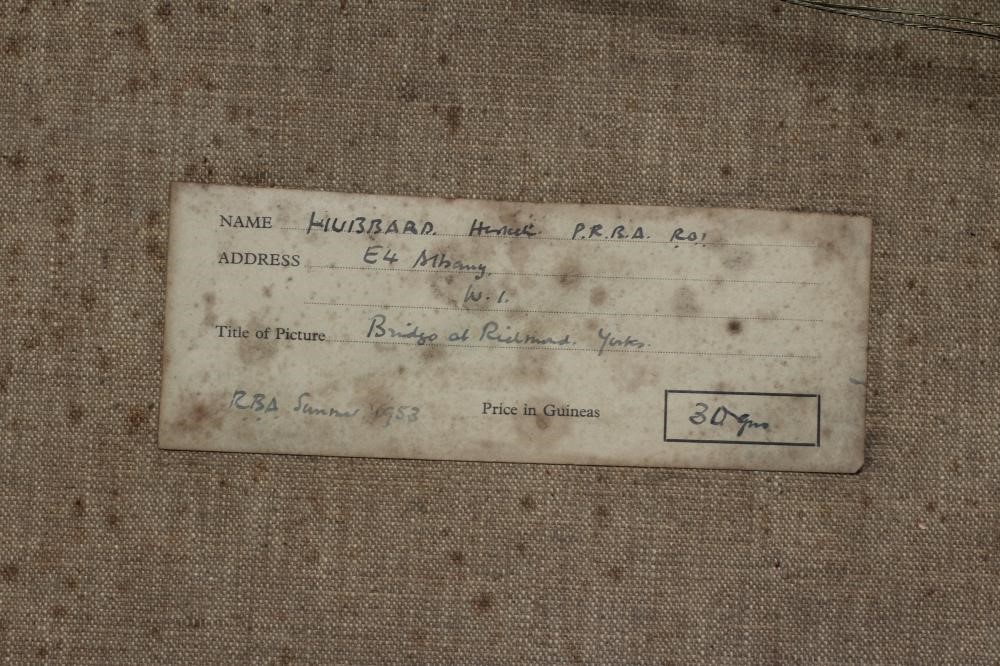 NAME HUBBARD. Hesketh. P.R.B.A. R.O.I
ADDRESS E4 Albany.
W.1.
Title of Picture Bridge at Richmond. Yorks.
RBA Summer 1953 Price in Guineas 30 gns